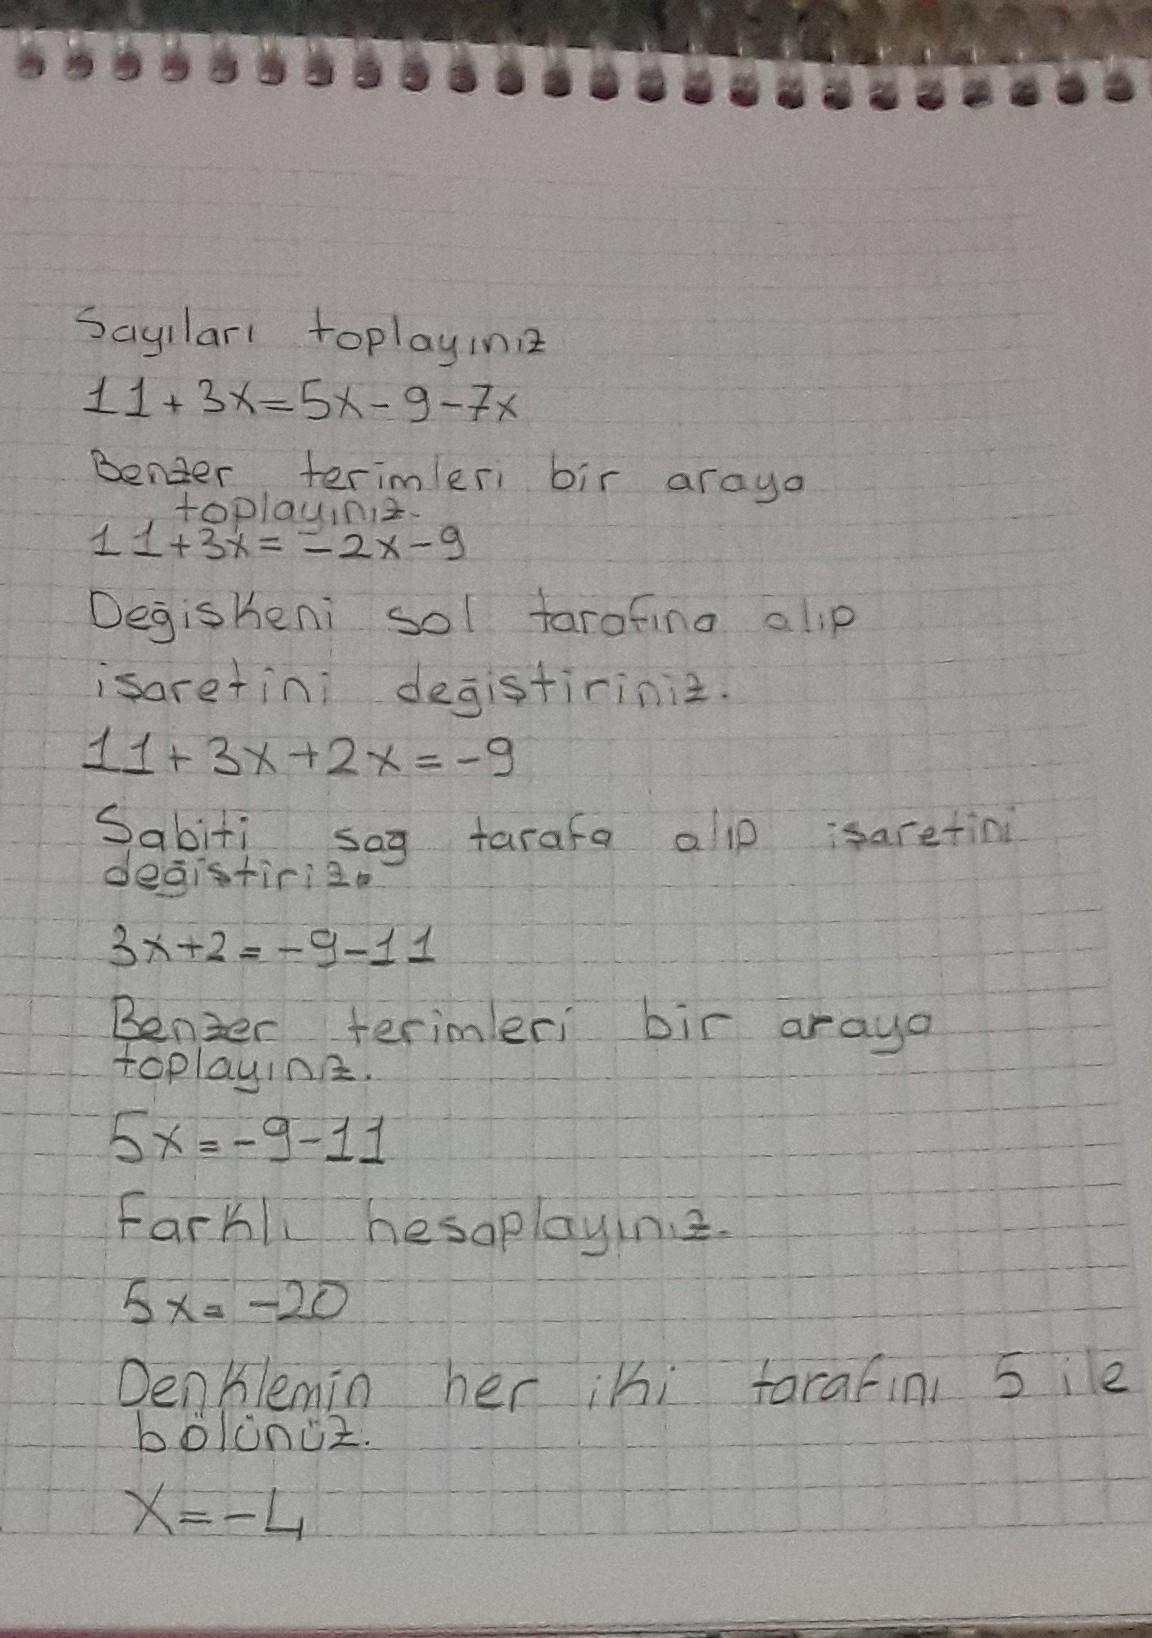 Sayıları toplayınız
11+3x=5x-9-7x
Benzer terimleri bir araya
toplayınız.
11+3x=-2x-9
Değişkeni sol tarafına alıp
işaretini değiştiriniz.
11+3x+2x=-9
Sabiti sag tarafa alıp işaretini
değiştiriz.
3x+2=-9-11
Benzer terimleri bir araya
toplayınız.
5x=-9-11
Farklı hesaplayınız.
5x=-20
Denklemin her iki tarafını 5 ile
bölünüz.
x=-4